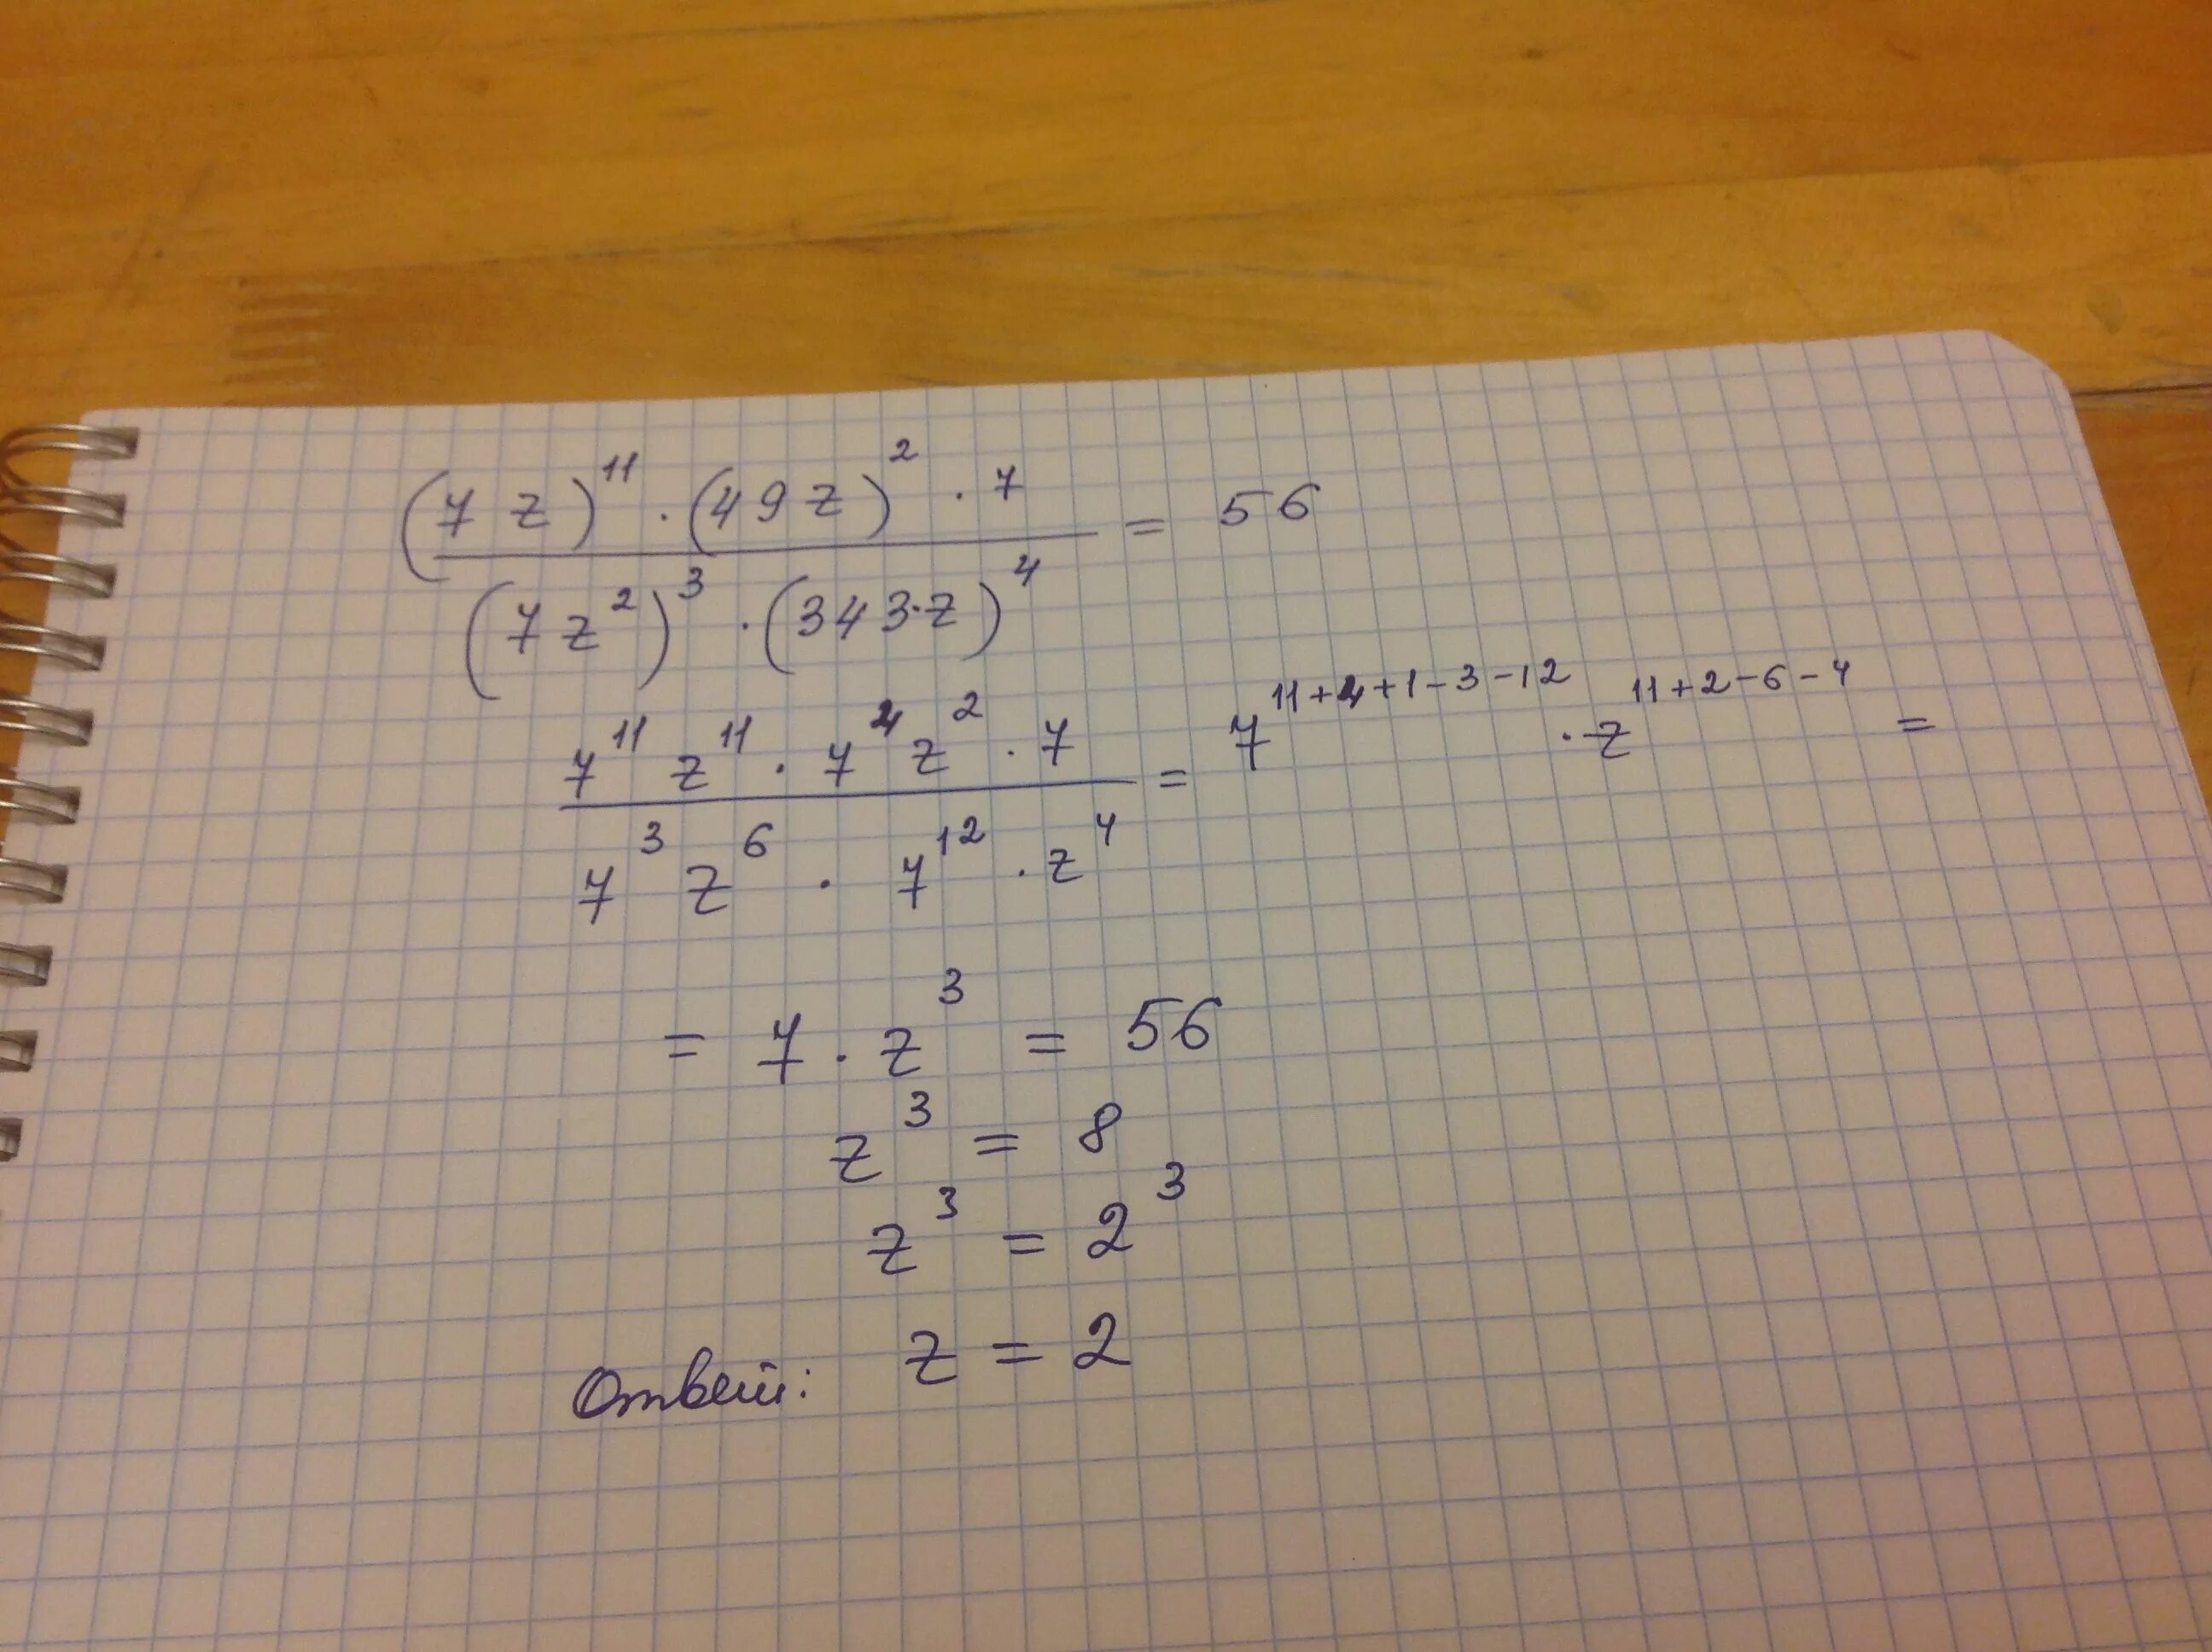 (7z)¹¹ · (49z)² · 7 / (7z²)³ · (343·z)⁴ = 56
7¹¹ z¹¹ · 7⁴ z² · 7 / 7³ z⁶ · 7¹² · z⁴ = 7¹¹⁺⁴⁺¹⁻³⁻¹² · z¹¹⁺²⁻⁶⁻⁴ =
= 7 · z³ = 56
z³ = 8
z³ = 2³
Ответ: z = 2